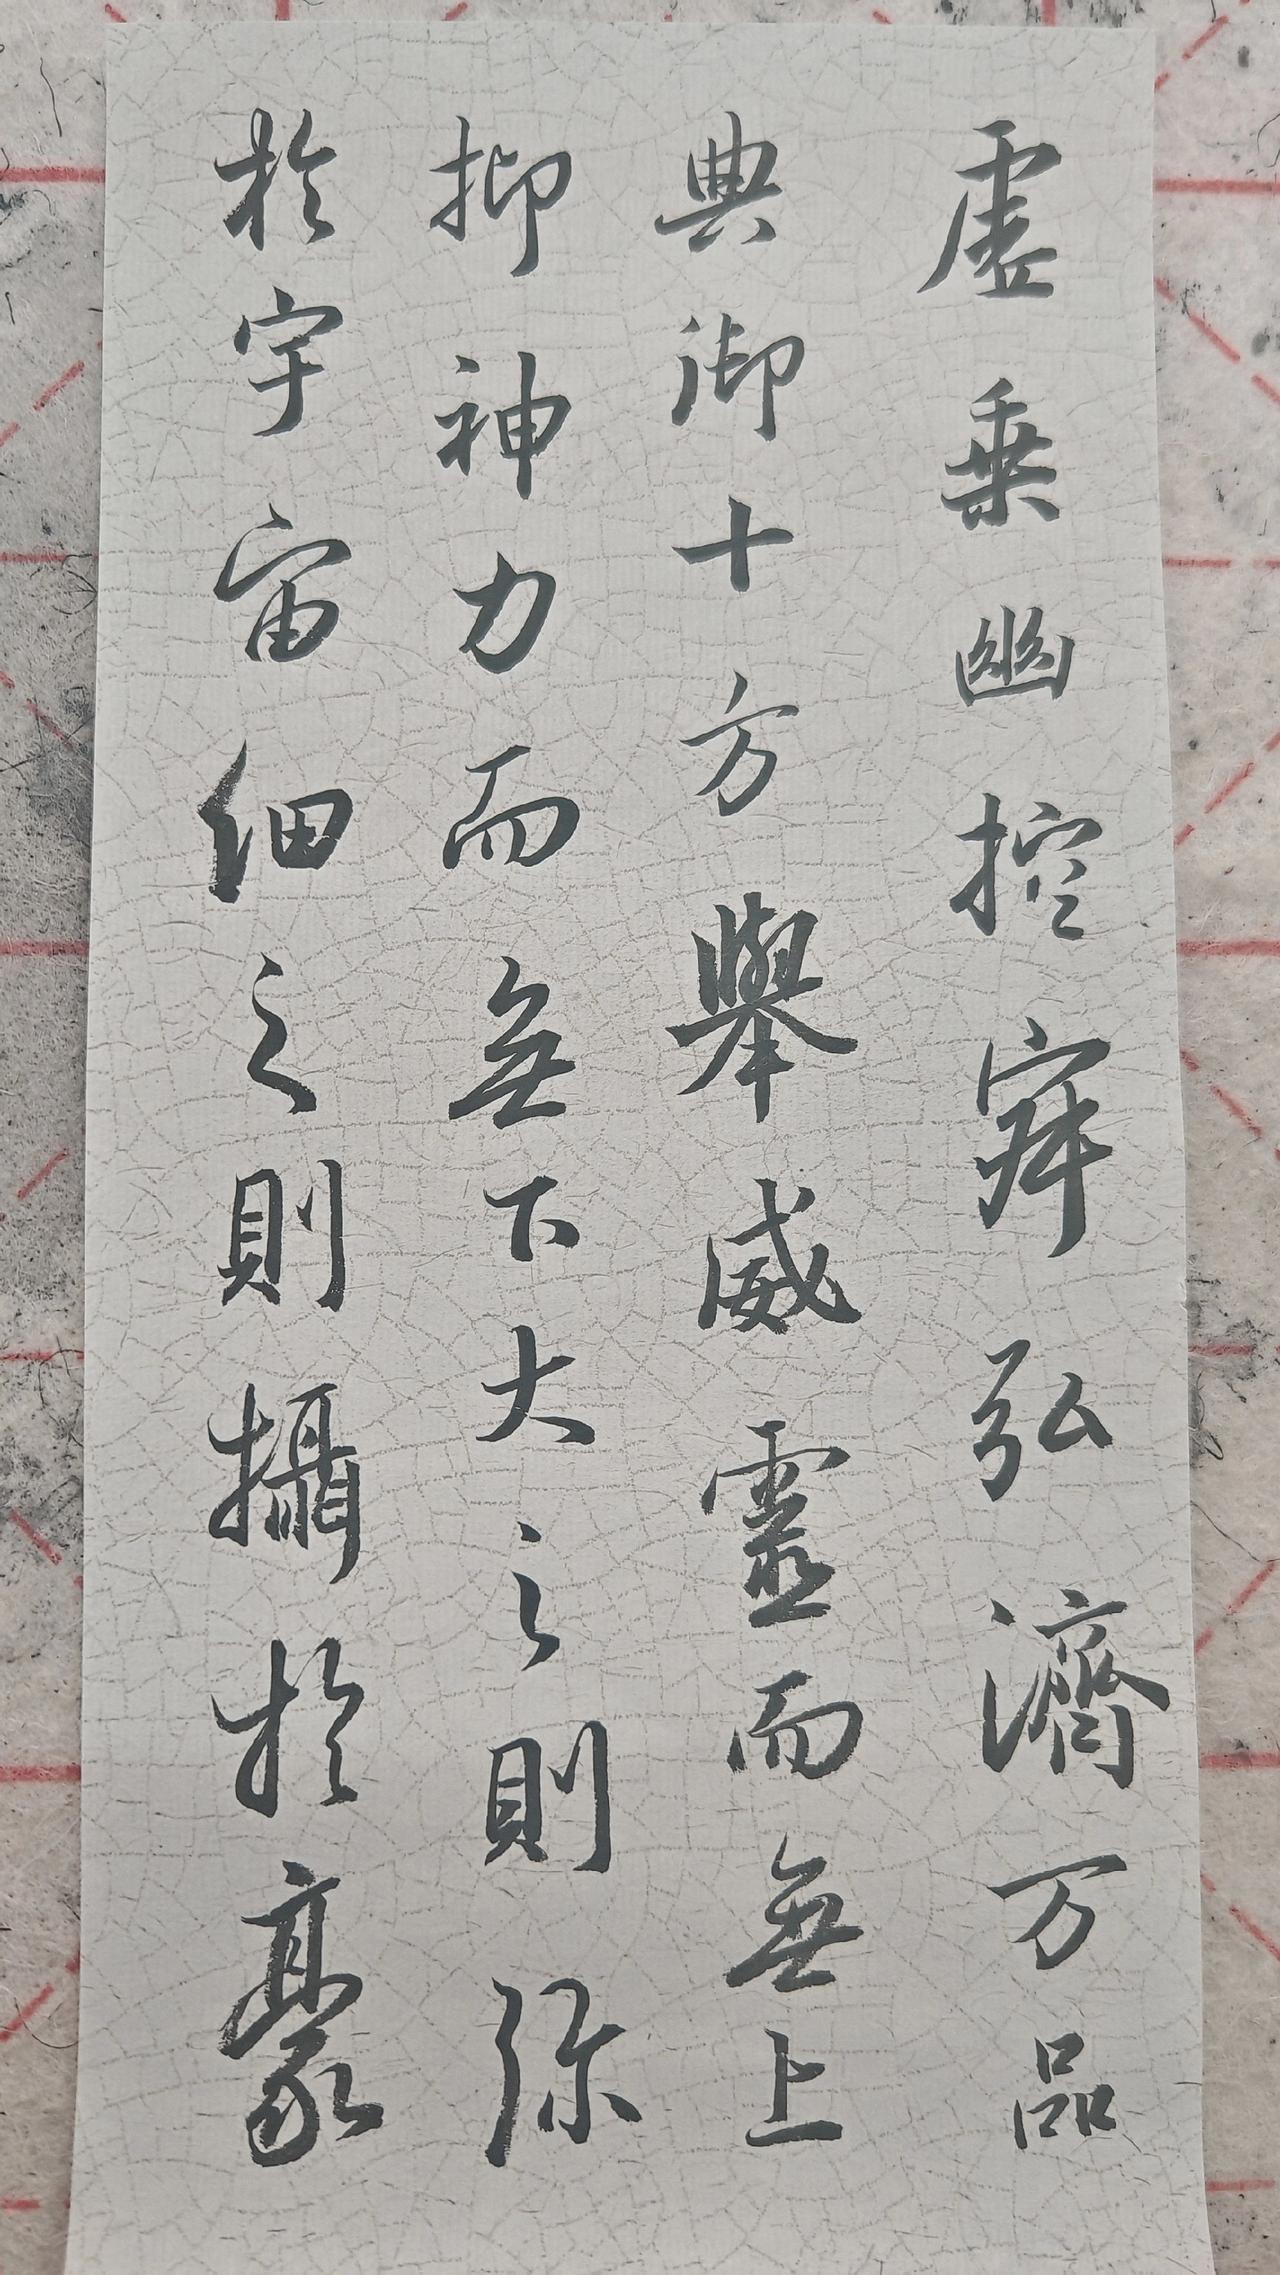 虛乗幽控寂弘濟万品
典御十方舉威靈而無上
抑神力而無下大之則弥
於宇宙細之則攝於豪